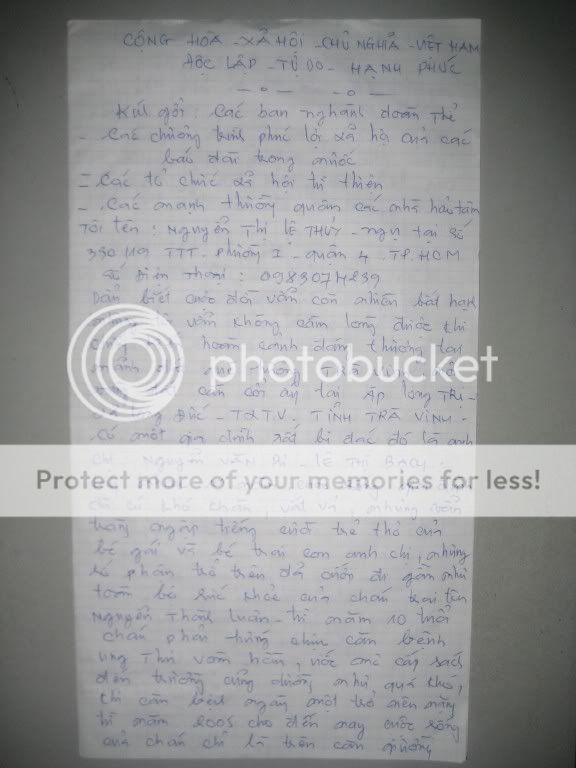 CỘNG HOÀ - XÃ HỘI - CHỦ NGHĨA - VIỆT NAM
ĐỘC LẬP - TỰ DO - HẠNH PHÚC
Kính gởi: Các ban nghành đoàn thể
- Các chương trình phúc lợi xã hội của các
báo đài trong nước
- Các tổ chức xã hội từ thiện
- Các mạnh thường quân các nhà hảo tâm
Tôi tên: NGUYỄN THỊ LỆ THỦY - ngụ tại số
TTT - phường I - quận 4 - TP. HCM
Số Điện Thoại:
Dẫu biết cuộc đời vẫn còn nhiều bất hạnh
vẫn không cầm lòng được khi
hoàn cảnh đáng thương tại
photobucket
cằn cỗi ấy tại Ấp Long Trị -
Đức - TXTV - TỈNH TRÀ VINH.
Có một gia đình rất bi đát đó là anh
chị NGUYỄN VĂN - LÊ THỊ BẠCH.
Protect more of your memories for less!
khó khăn, vất vả, nhưng vẫn
tràng ngập tiếng cười trẻ thơ của
bé gái và bé trai con anh chị, nhưng
số phận trớ trêu đã cướp đi gần như
toàn bộ sức khỏe của cháu trai tên
NGUYỄN Thành Luân - từ năm 10 tuổi
cháu phải hứng chịu căn bệnh
ung thư vòm họng, ước mơ cấp sách
đến trường cũng dường như quá khó,
khi căn bệnh ngày một trở nên nặng
từ năm 2005 cho đến nay cuộc sống
của cháu chỉ là trên căn giường